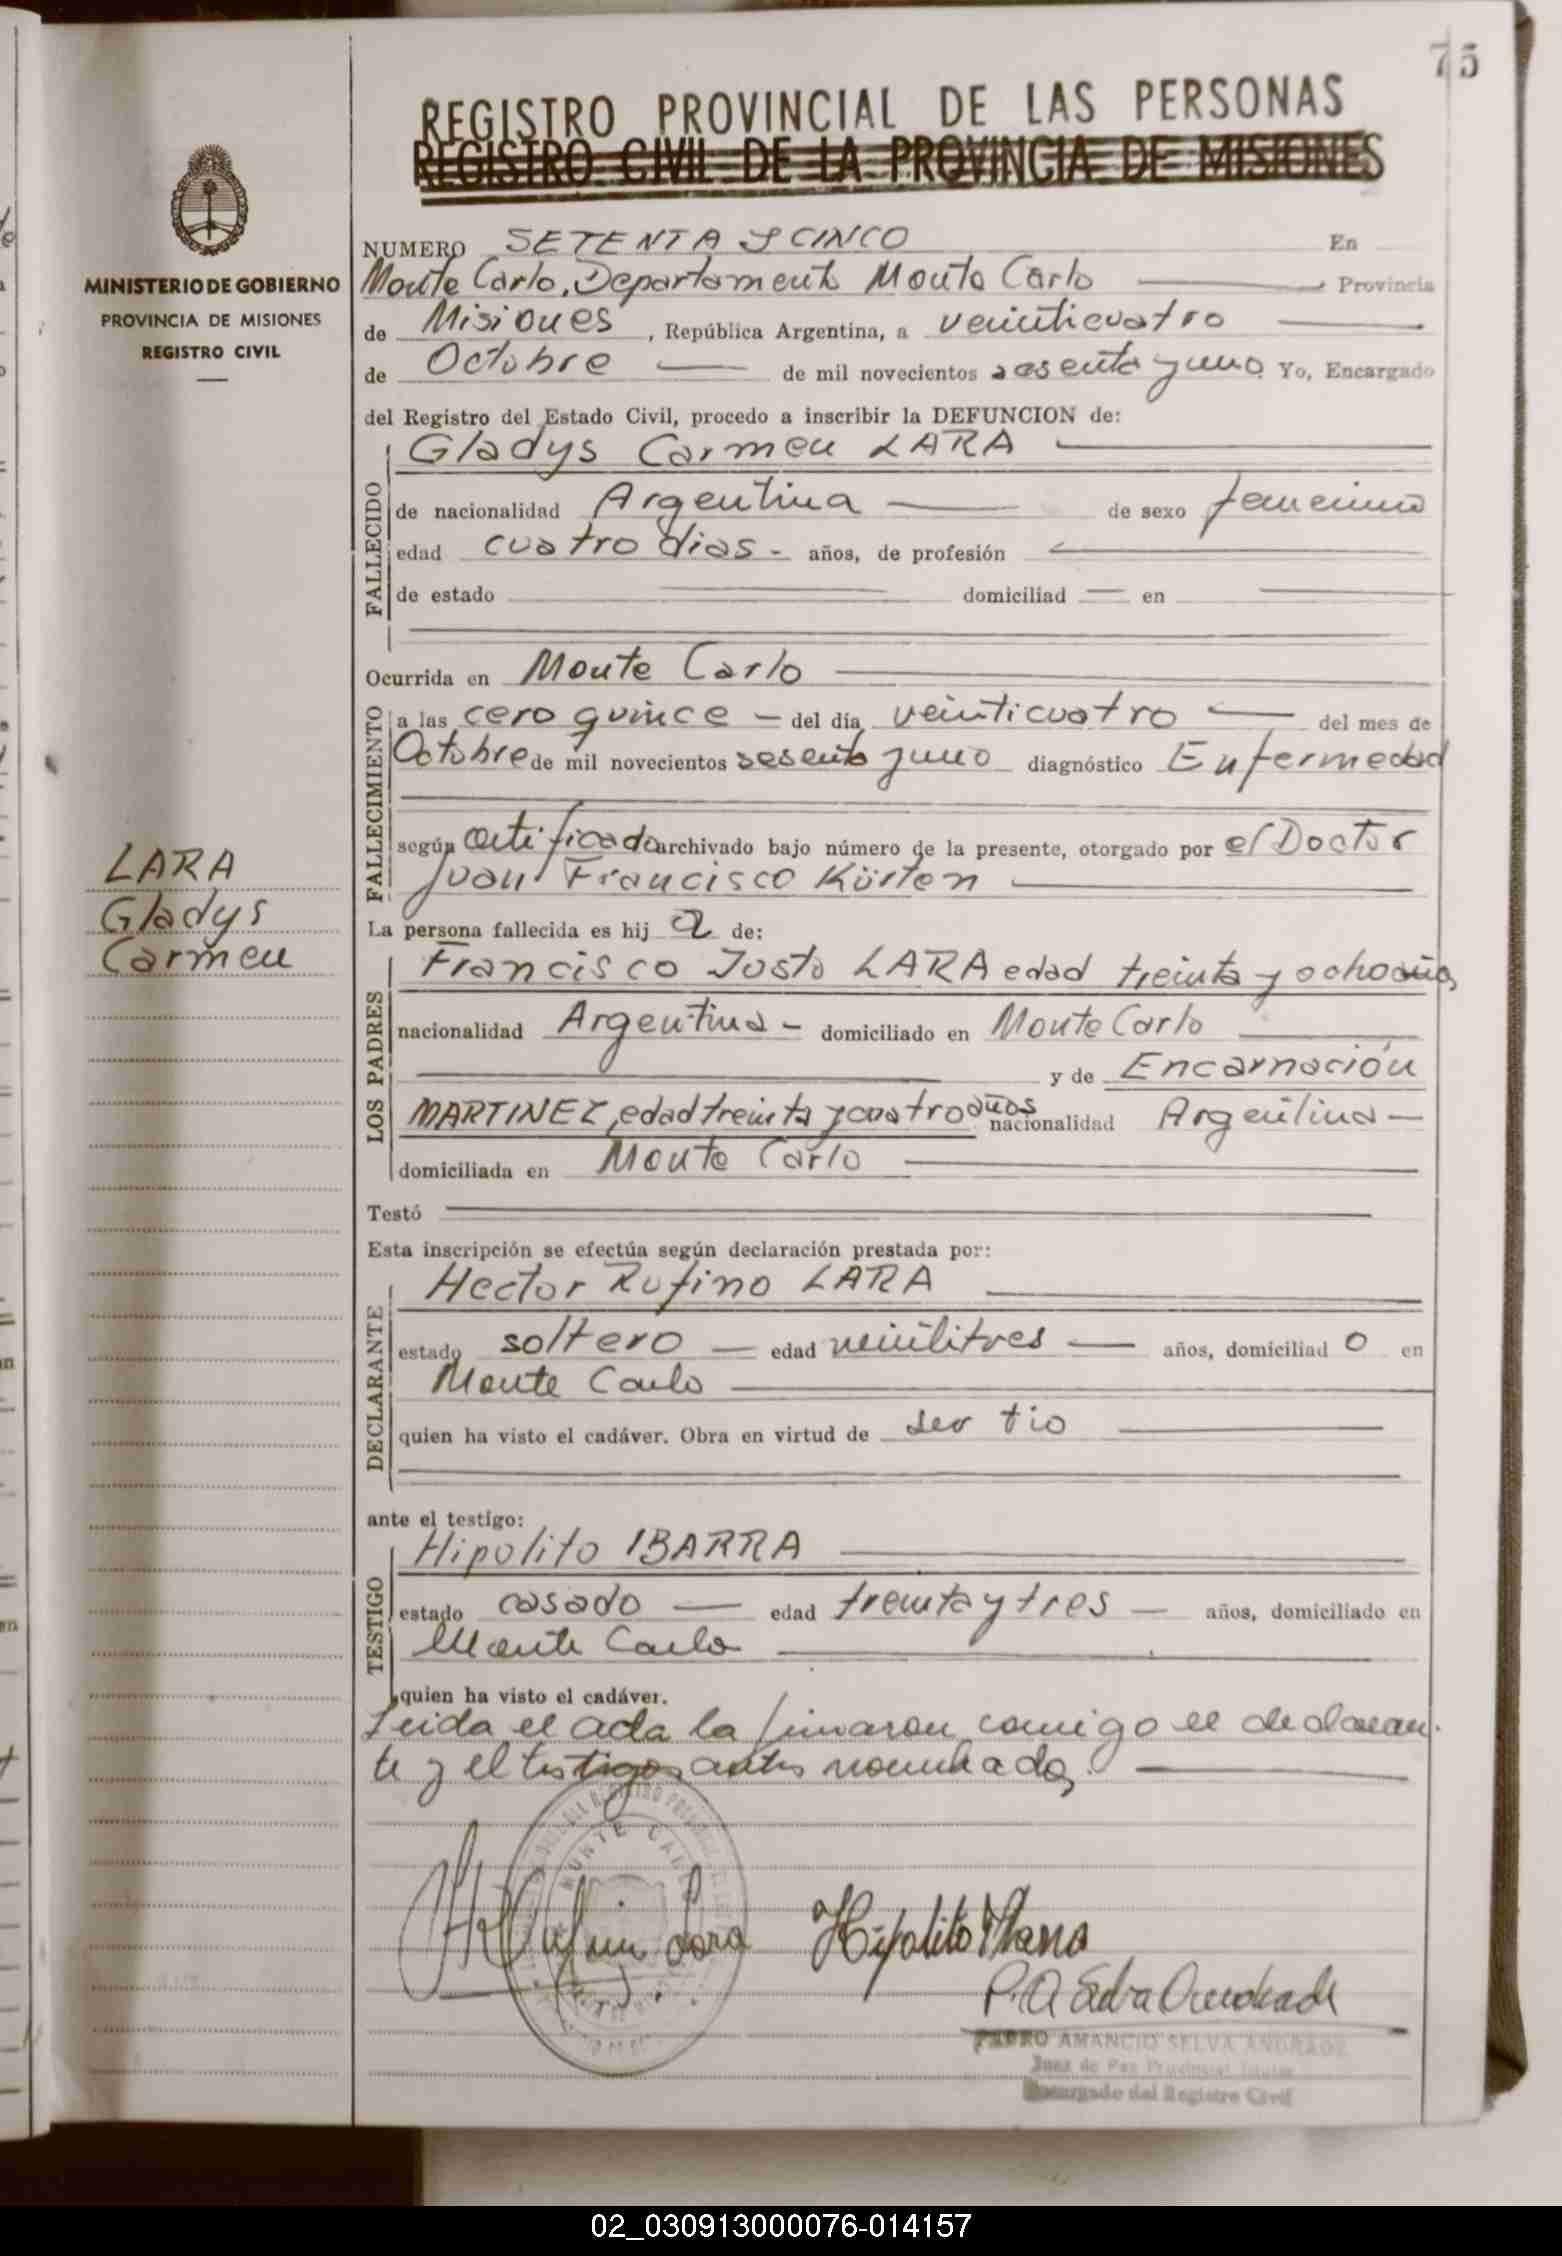 75
REGISTRO PROVINCIAL DE LAS PERSONAS
REGISTRO CIVIL DE LA PROVINCIA DE MISIONES
MINISTERIO DE GOBIERNO
PROVINCIA DE MISIONES
REGISTRO CIVIL
NUMERO SETENTA Y CINCO En
Monte Carlo, Departamento Monte Carlo Provincia
de Misiones, República Argentina, a veinticuatro
de Octobre de mil novecientos sesenta y uno Yo, Encargado
del Registro del Estado Civil, procedo a inscribir la DEFUNCION de:
FALLECIDO
Gladys Carmen LARA
de nacionalidad Argentina de sexo femenino
edad cuatro dias - años, de profesión
de estado domiciliad en
Ocurrida en Monte Carlo
FALLECIMIENTO
a las cero quince - del día veinticuatro del mes de
Octobre de mil novecientos sesenta y uno diagnóstico Enfermedad
según certificado archivado bajo número de la presente, otorgado por el Doctor
Juan Francisco Kürten
LARA
Gladys
Carmen
La persona fallecida es hij a de:
LOS PADRES
Francisco Justo LARA edad treinta y ocho años
nacionalidad Argentina - domiciliado en Monte Carlo
y de Encarnación
MARTINEZ, edad treinta y cuatro años nacionalidad Argentina -
domiciliada en Monte Carlo
Testó
Esta inscripción se efectúa según declaración prestada por:
DECLARANTE
Hector Rufino LARA
estado soltero - edad veintitres - años, domiciliad o en
Monte Carlo
quien ha visto el cadáver. Obra en virtud de ser tio
ante el testigo:
TESTIGO
Hipolito IBARRA
estado casado - edad treinta y tres - años, domiciliado en
Monte Carlo
quien ha visto el cadáver.
Leida el acta la firmaron comigo el declaran-
te y el testigos antes nombrados
Hipolito Ibarra
P. A Selva Andrade
PEDRO AMANCIO SELVA ANDRADE
Juez de Paz Provincial Titular
Encargado del Registro Civil
MONTE CARLO
02_030913000076-014157